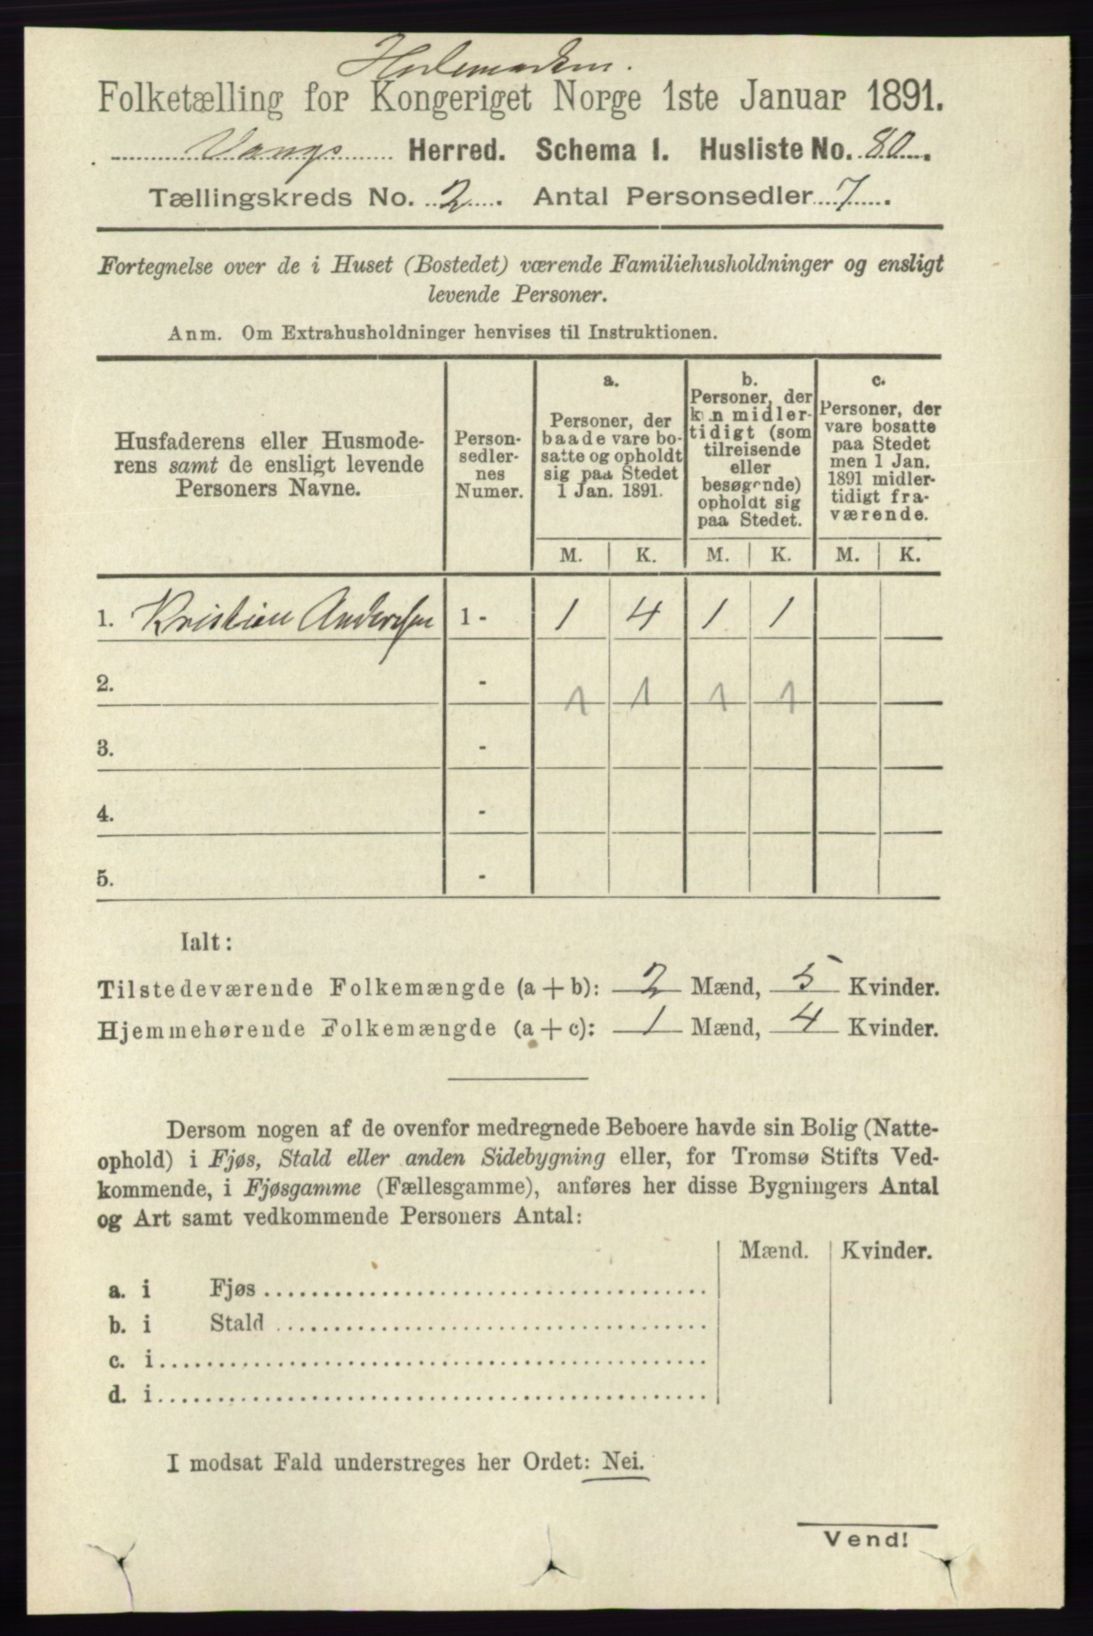 Hedemarken.
Folketælling for Kongeriget Norge 1ste Januar 1891.
Vangs Herred. Schema I. Husliste No. 80.
Tællingskreds No. 2. Antal Personsedler 7.
Fortegnelse over de i Huset (Bostedet) værende Familiehusholdninger og ensligt
levende Personer.
Anm. Om Extrahusholdninger henvises til Instruktionen.
Husfaderens eller Husmode-
rens samt de ensligt levende
Personers Navne.
Person-
sedler-
nes
Numer.
a.
Personer, der
baade vare bo-
satte og opholdt
sig paa Stedet
1 Jan. 1891.
b.
Personer, der
kun midler-
tidigt (som
tilreisende
eller
besøgende)
opholdt sig
paa Stedet.
c.
Personer, der
vare bosatte
paa Stedet
men 1 Jan.
1891 midler-
tidigt fra-
værende.
M. K. M. K. M. K.
1. Kristian Andersen 1 - 1 4 1 1
2. - 1 1 1 1
3. -
4. -
5. -
Ialt:
Tilstedeværende Folkemængde (a + b): 2 Mænd, 5 Kvinder.
Hjemmehørende Folkemængde (a + c): 1 Mænd, 4 Kvinder.
Dersom nogen af de ovenfor medregnede Beboere havde sin Bolig (Natte-
ophold) i Fjøs, Stald eller anden Sidebygning eller, for Tromsø Stifts Ved-
kommende, i Fjøsgamme (Fællesgamme), anføres her disse Bygningers Antal
og Art samt vedkommende Personers Antal:
Mænd. Kvinder.
a. i Fjøs
b. i Stald
c. i
d. i
I modsat Fald understreges her Ordet: Nei.
Vend!